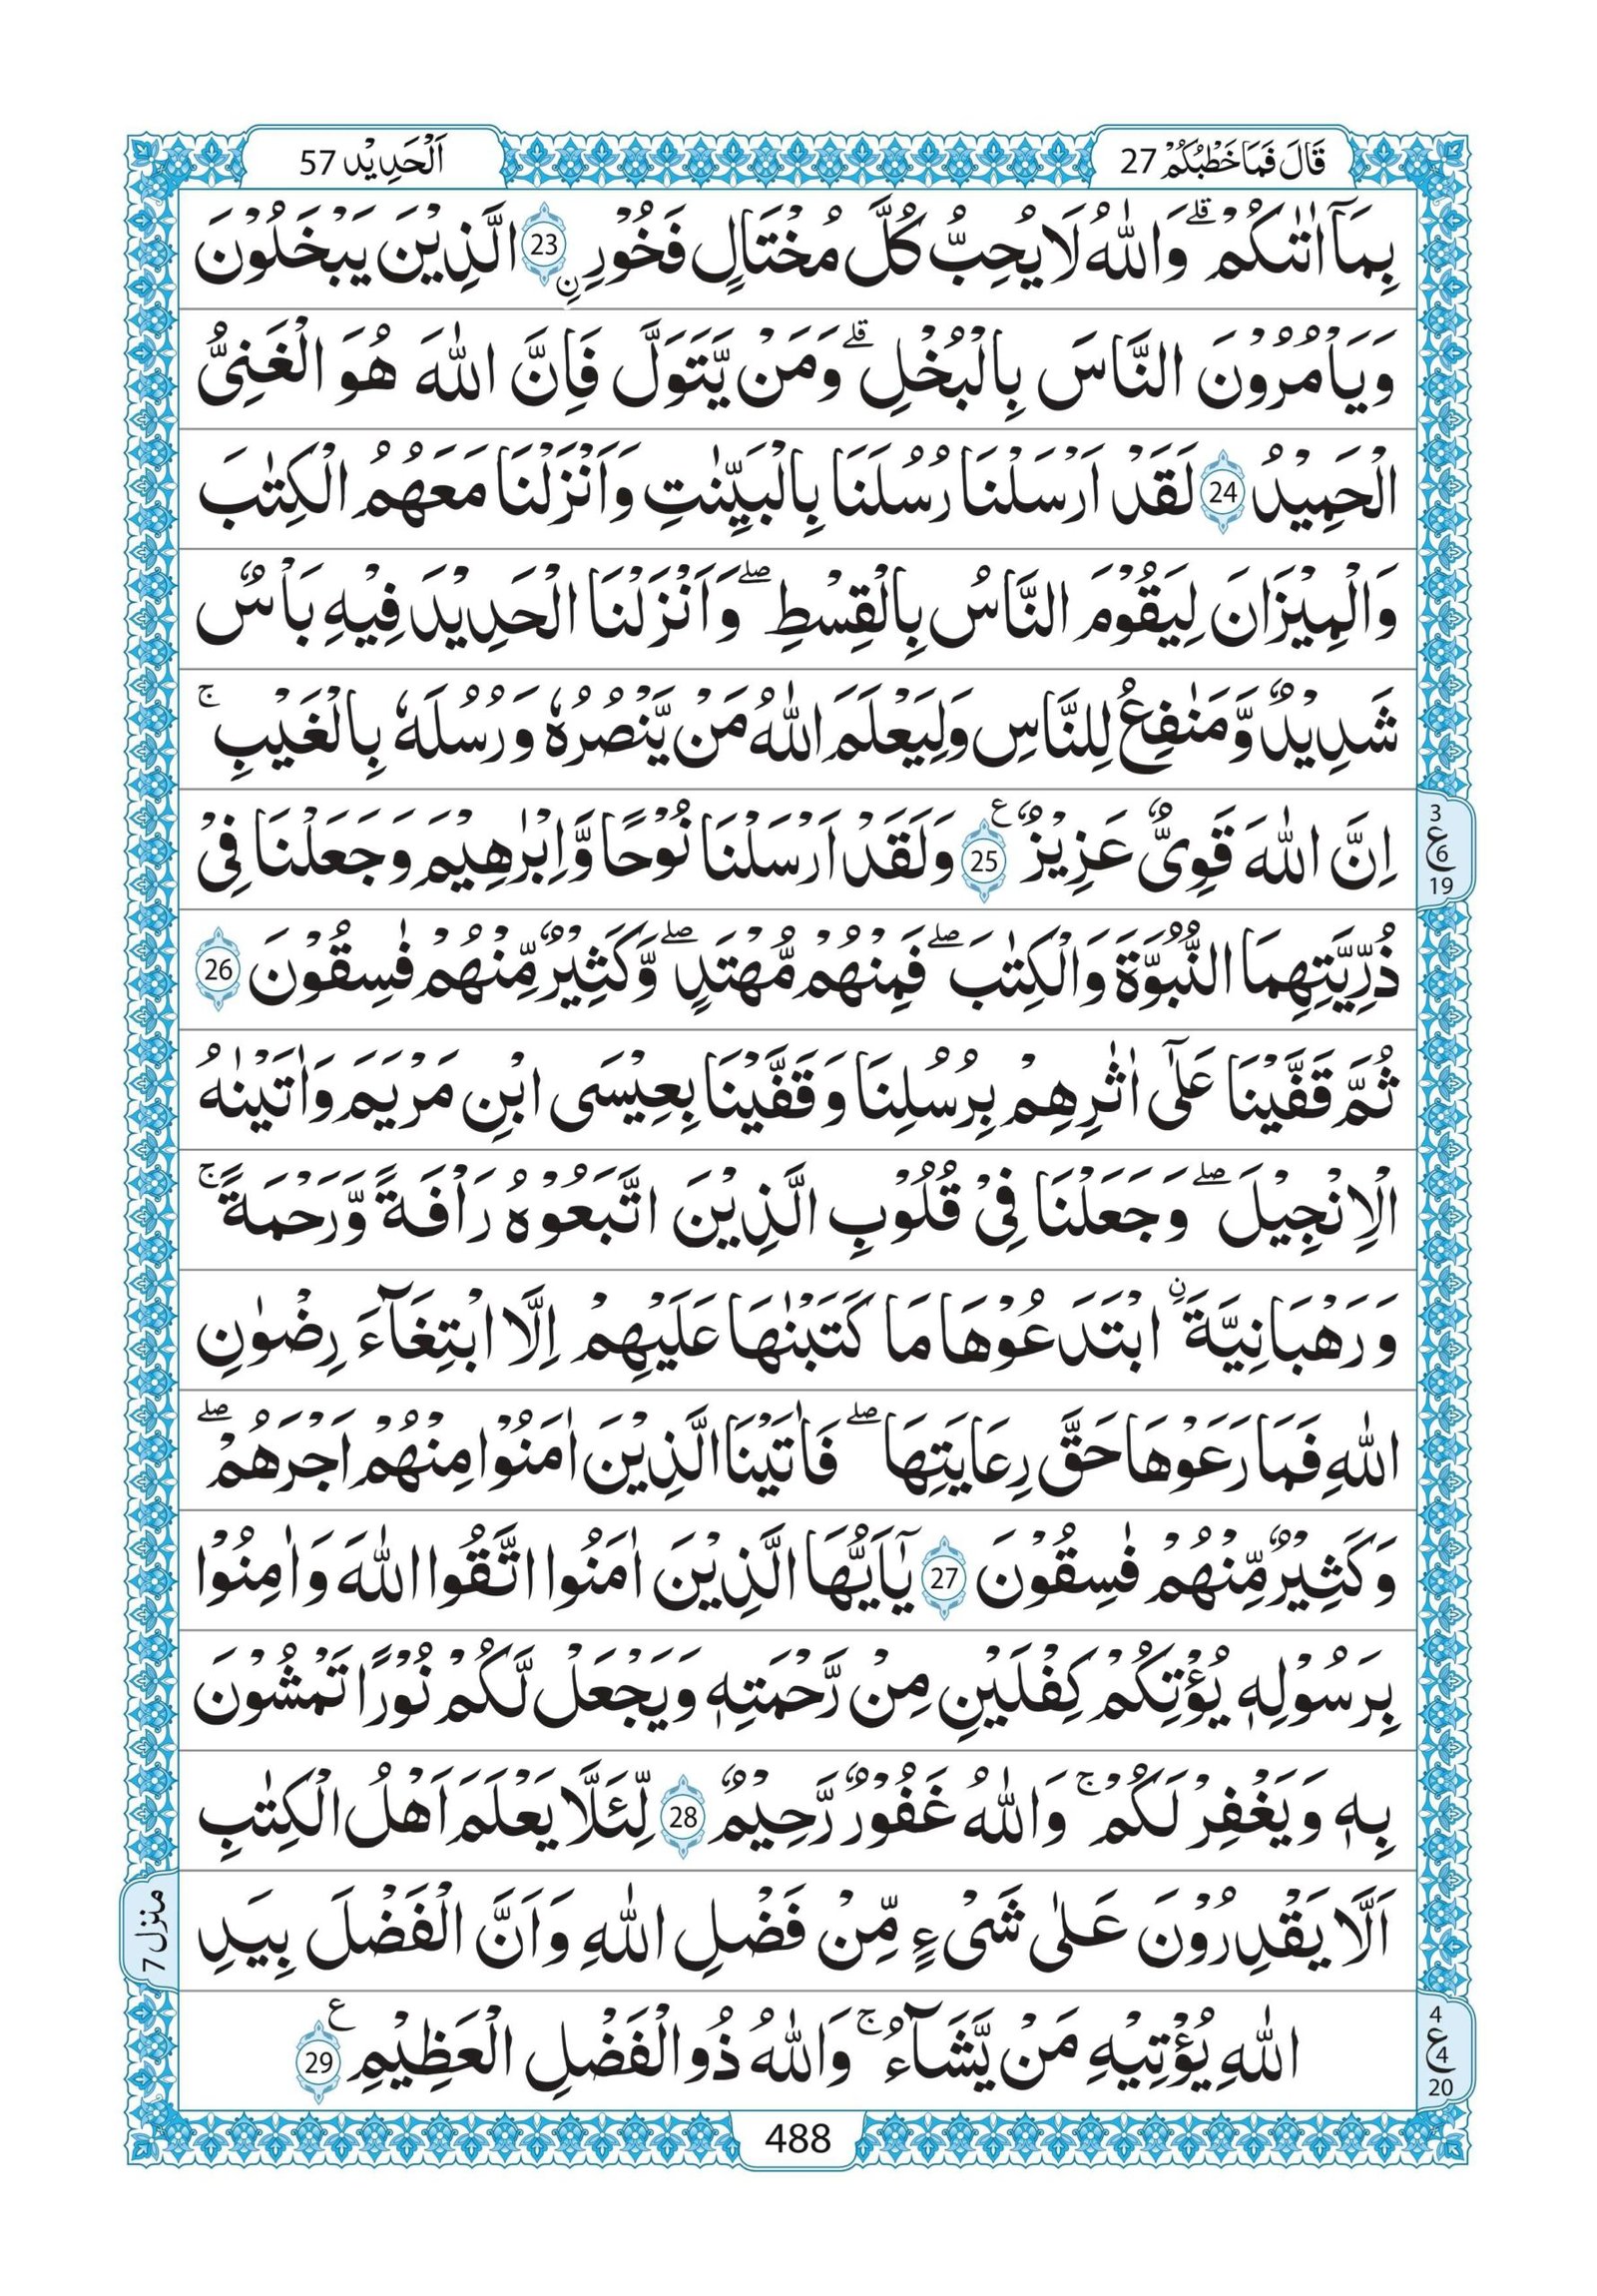 قَالَ فَمَا خَطْبُكُمْ 27
اَلْحَدِيْد 57
بِمَاۤ اٰتٰىكُمْ ؕ وَاللّٰهُ لَا يُحِبُّ كُلَّ مُخْتَالٍ فَخُوْرِ ۨ 23 الَّذِيْنَ يَبْخَلُوْنَ
وَيَاْمُرُوْنَ النَّاسَ بِالْبُخْلِ ۗ وَمَنْ يَّتَوَلَّ فَاِنَّ اللّٰهَ هُوَ الْغَنِىُّ
الْحَمِيْدُ 24 لَقَدْ اَرْسَلْنَا رُسُلَنَا بِالْبَيِّنٰتِ وَاَنْزَلْنَا مَعَهُمُ الْكِتٰبَ
وَالْمِيْزَانَ لِيَقُوْمَ النَّاسُ بِالْقِسْطِ ۖ وَاَنْزَلْنَا الْحَدِيْدَ فِيْهِ بَاْسٌ
شَدِيْدٌ وَّمَنٰفِعُ لِلنَّاسِ وَلِيَعْلَمَ اللّٰهُ مَنْ يَّنْصُرُهٗ وَرُسُلَهٗ بِالْغَيْبِ ۚ
3
اِنَّ اللّٰهَ قَوِىٌّ عَزِيْزٌ ع 25 وَلَقَدْ اَرْسَلْنَا نُوْحًا وَّاِبْرٰهِيْمَ وَجَعَلْنَا فِىْ
ع 6
19
ذُرِّيَّتِهِمَا النُّبُوَّةَ وَالْكِتٰبَ ۖ فَمِنْهُمْ مُّهْتَدٍ ۖ وَّكَثِيْرٌ مِّنْهُمْ فٰسِقُوْنَ 26
ثُمَّ قَفَّيْنَا عَلٰٓى اٰثٰرِهِمْ بِرُسُلِنَا وَقَفَّيْنَا بِعِيْسَى ابْنِ مَرْيَمَ وَاٰتَيْنٰهُ
الْاِنْجِيْلَ ۖ وَجَعَلْنَا فِىْ قُلُوْبِ الَّذِيْنَ اتَّبَعُوْهُ رَاْفَةً وَّرَحْمَةً ۚ
وَرَهْبَانِيَّةَ ۨ ابْتَدَعُوْهَا مَا كَتَبْنٰهَا عَلَيْهِمْ اِلَّا ابْتِغَآءَ رِضْوٰنِ
اللّٰهِ فَمَا رَعَوْهَا حَقَّ رِعَايَتِهَا ۖ فَاٰتَيْنَا الَّذِيْنَ اٰمَنُوْا مِنْهُمْ اَجْرَهُمْ ۖ
وَكَثِيْرٌ مِّنْهُمْ فٰسِقُوْنَ 27 يٰۤاَيُّهَا الَّذِيْنَ اٰمَنُوا اتَّقُوا اللّٰهَ وَاٰمِنُوْا
بِرَسُوْلِهٖ يُؤْتِكُمْ كِفْلَيْنِ مِنْ رَّحْمَتِهٖ وَيَجْعَلْ لَّكُمْ نُوْرًا تَمْشُوْنَ
بِهٖ وَيَغْفِرْ لَكُمْ ۚ وَاللّٰهُ غَفُوْرٌ رَّحِيْمٌ 28 لِّئَلَّا يَعْلَمَ اَهْلُ الْكِتٰبِ
اَلَّا يَقْدِرُوْنَ عَلٰى شَىْءٍ مِّنْ فَضْلِ اللّٰهِ وَاَنَّ الْفَضْلَ بِيَدِ
منزل 7
اللّٰهِ يُؤْتِيْهِ مَنْ يَّشَآءُ ۚ وَاللّٰهُ ذُو الْفَضْلِ الْعَظِيْمِ ع 29
4
ع 4
20
488